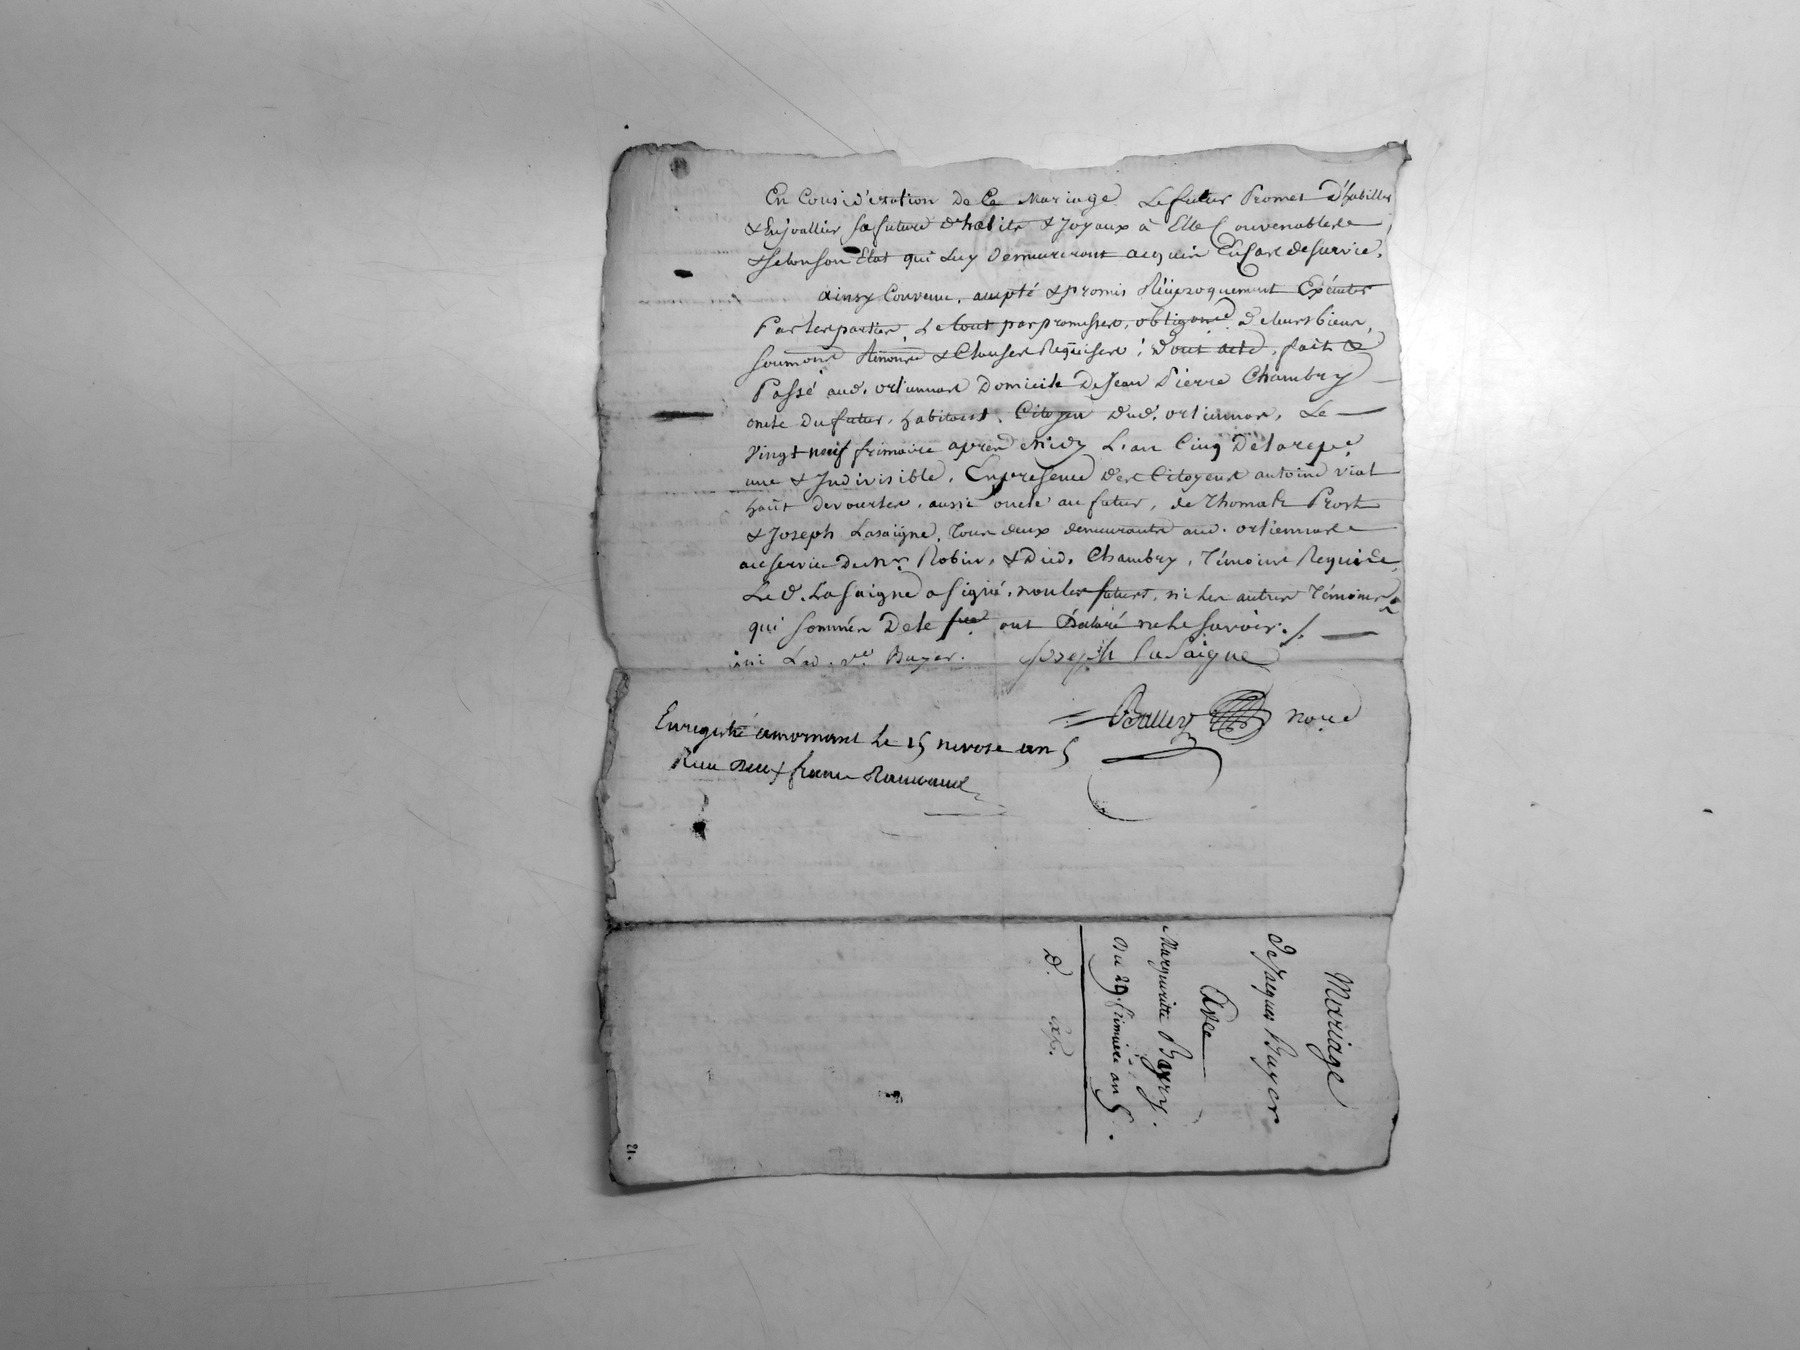 En Considération De Ce Mariage Le futur Promet D'habiller
& Enjoallier sa future d'habits & Joyaux à Elle Convenables
& selon son Etat qui Luy Demeureront acquis En Cas de survie.
ainsy Convenu, accepté & promis Réciproquement Exécuter
Par les parties, Le tout par promesses, obligance De leurs biens,
soumons Renonce & Clauses Requises; Dont acte, fait &
Passé aud. ortiennas Domicile De Jean Pierre Chambry
oncle Du futur, habitant, Citoyen Dud. ortiennas, Le
Vingt neuf frimaire après midy L'an Cinq De la repe.
une & Indivisible, En presence des Citoyens antoine viat
haut de vourles, aussi oncle au futur, de Thomas Prost
& Joseph Lasaigne, Tous deux demeurants aud. ortiennas
au service De Mr. Robin, & Dud. Chambry, Témoins Requis
Led. Lasaigne a signé, non les futurs, ni les autres Témoins
qui sommés De le fre. ont Déclaré ne le savoir ./.
Lad. ve. Buyer. Joseph Lasaigne
Balley nore
Enregistré a mornant le 15 nivose an 5
Reçu deux francs
Mariage
De Jacques Buyer
Avec
Marguerite Bayry.
Du 29. frimaire an 5.
D. exp.
21.